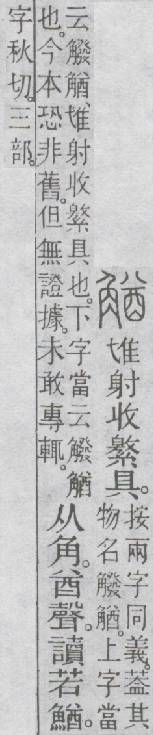 䚛隿射收繁具。
按兩字同義。葢其
物名𧤏䚛。上字當
云𧤏䚛、隿射收繁具也。下字當云𧤏䚛
也。今本恐非舊。但無證據。未敢專輒。
从角。酋聲。讀若鰌。
字秋切。三部。